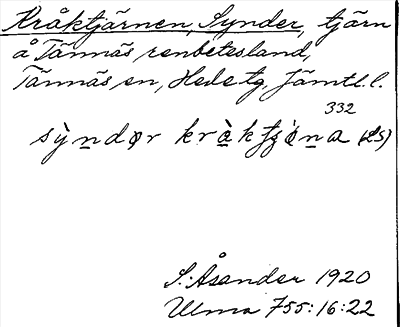 Kråktjärnen, Synder, tjärn
å Tännäs renbetesland,
Tännäs sn, Hede tg, Jämtl. l.
332
(LS)
S. Åsander 1920
Ulma 755:16:22